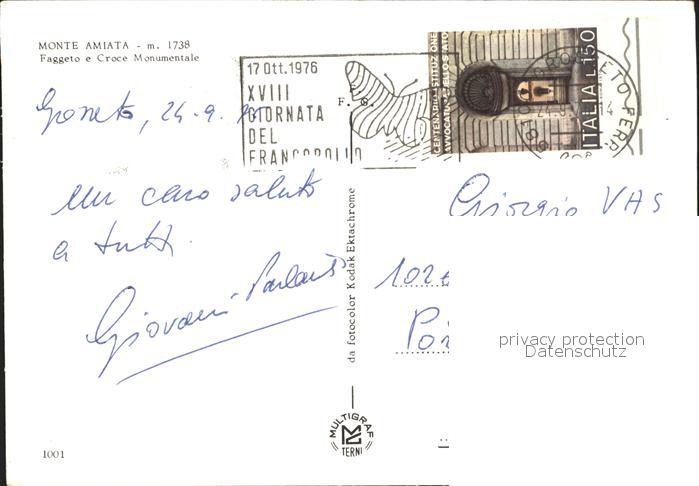 MONTE AMIATA - m. 1738
Faggeto e Croce Monumentale
17 Ott. 1976
XVIII
GIORNATA
DEL
FRANCOBOLLO
F. S.
CENTENARIO ISTITUZIONE
AVVOCATURA DELLO STATO
ITALIA L.150
24.9.
un caro saluto
a tutti.
Giovanni
Giorgio VAS
102
Poi
privacy protection
Datenschutz
da fotocolor Kodak Ektachrome
MULTIGRAF
TERNI
1001